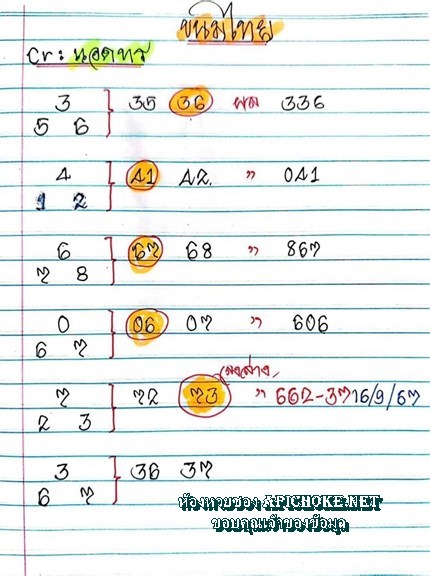 ขนมไทย
Cr: นอดทร
3 35 36 ผล 336
5 6
4 41 42 " 041
1 2
6 67 68 " 867
7 8
0 06 07 " 606
6 7
เลขล่าง
7 72 73 " 662-37 16/9/67
2 3
3 36 37
6 7
ห้องหวยของ APICHOKE.NET
ขอบคุณเจ้าของข้อมูล